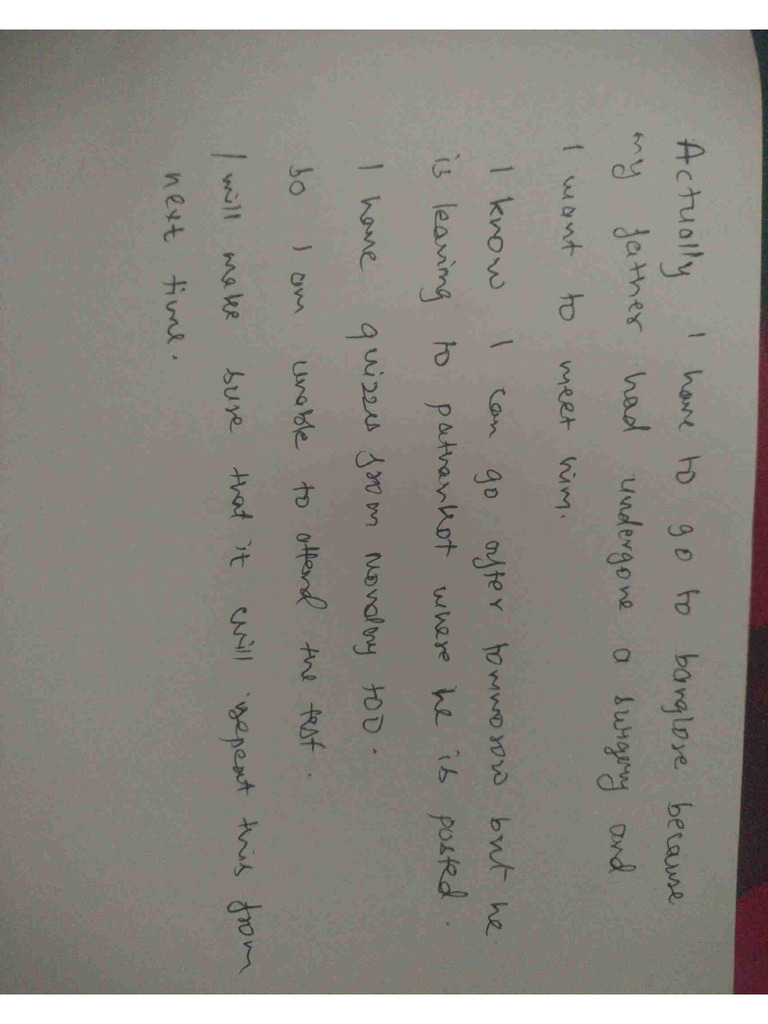 Actually I have to go to banglore because
my father had undergone a surgery and
I want to meet him.
I know I can go after tommorow but he
is leaving to pathankot where he is posted.
I have quizzes from monday too.
so I am unable to attend the test.
I will make sure that it will repeat this from
next time.